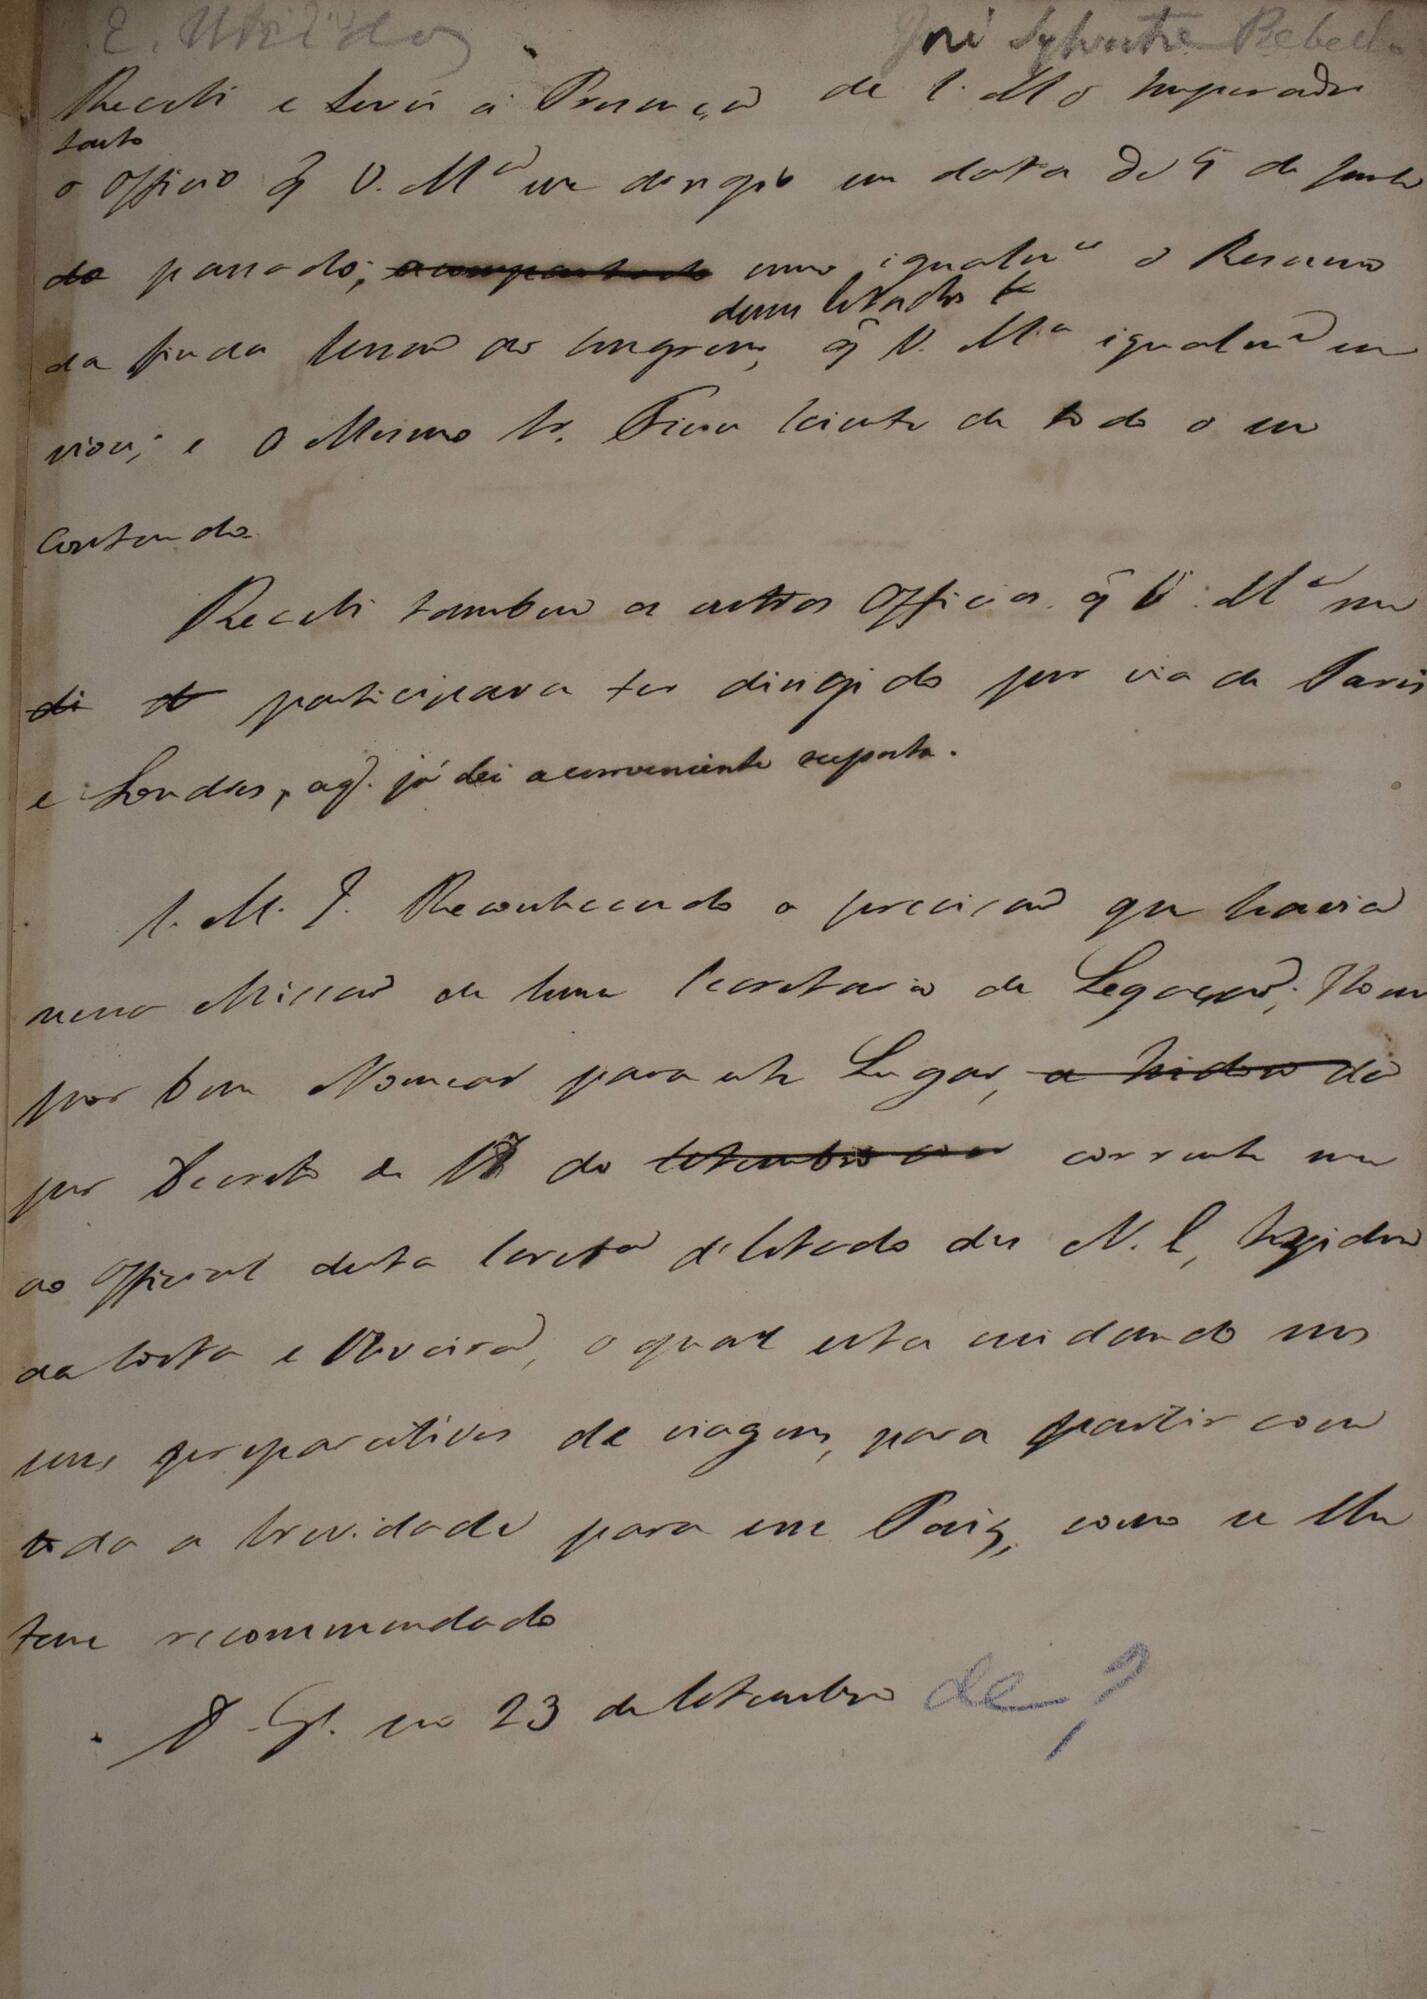 E. Unidos José Sylvestre Rebello
Recebi e Levei á Presença de S. M. o Imperador
tanto
o Officio q̃ V. M.ce me dirigio em data de 5 de Junho
do passado, acompanhado como igualm.te o Resumo
desses Estados
da finda Sessão do Congresso, q̃ V. M.ce igualm.e en
viou; e O Mesmo Sr. Ficou Sciente de todo o seu
contendo.
Recebi tambem os outros Officios q̃ V. M.ce me
di participava ter dirigido por via de Paris
e Londres, aq. já dei a conveniente resposta.
S. M. I. Reconhecendo a precisaõ que havia
nessa Missaõ de hum Secretario de Legaçaõ, Houve
por bem Nomear para este Lugar, a Isidoro da
por Decreto de do Setembro cor corrente mez
ao Official desta Secret.a d'Estado dos N. E, Izidoro
da Costa e Oliveira, o qual esta cuidando nos
seus preparativos de viagem, para partir com
toda a brevidade para esse Paiz, como se lhe
tem recommendado
D. G.e em 23 de Setembro de ?